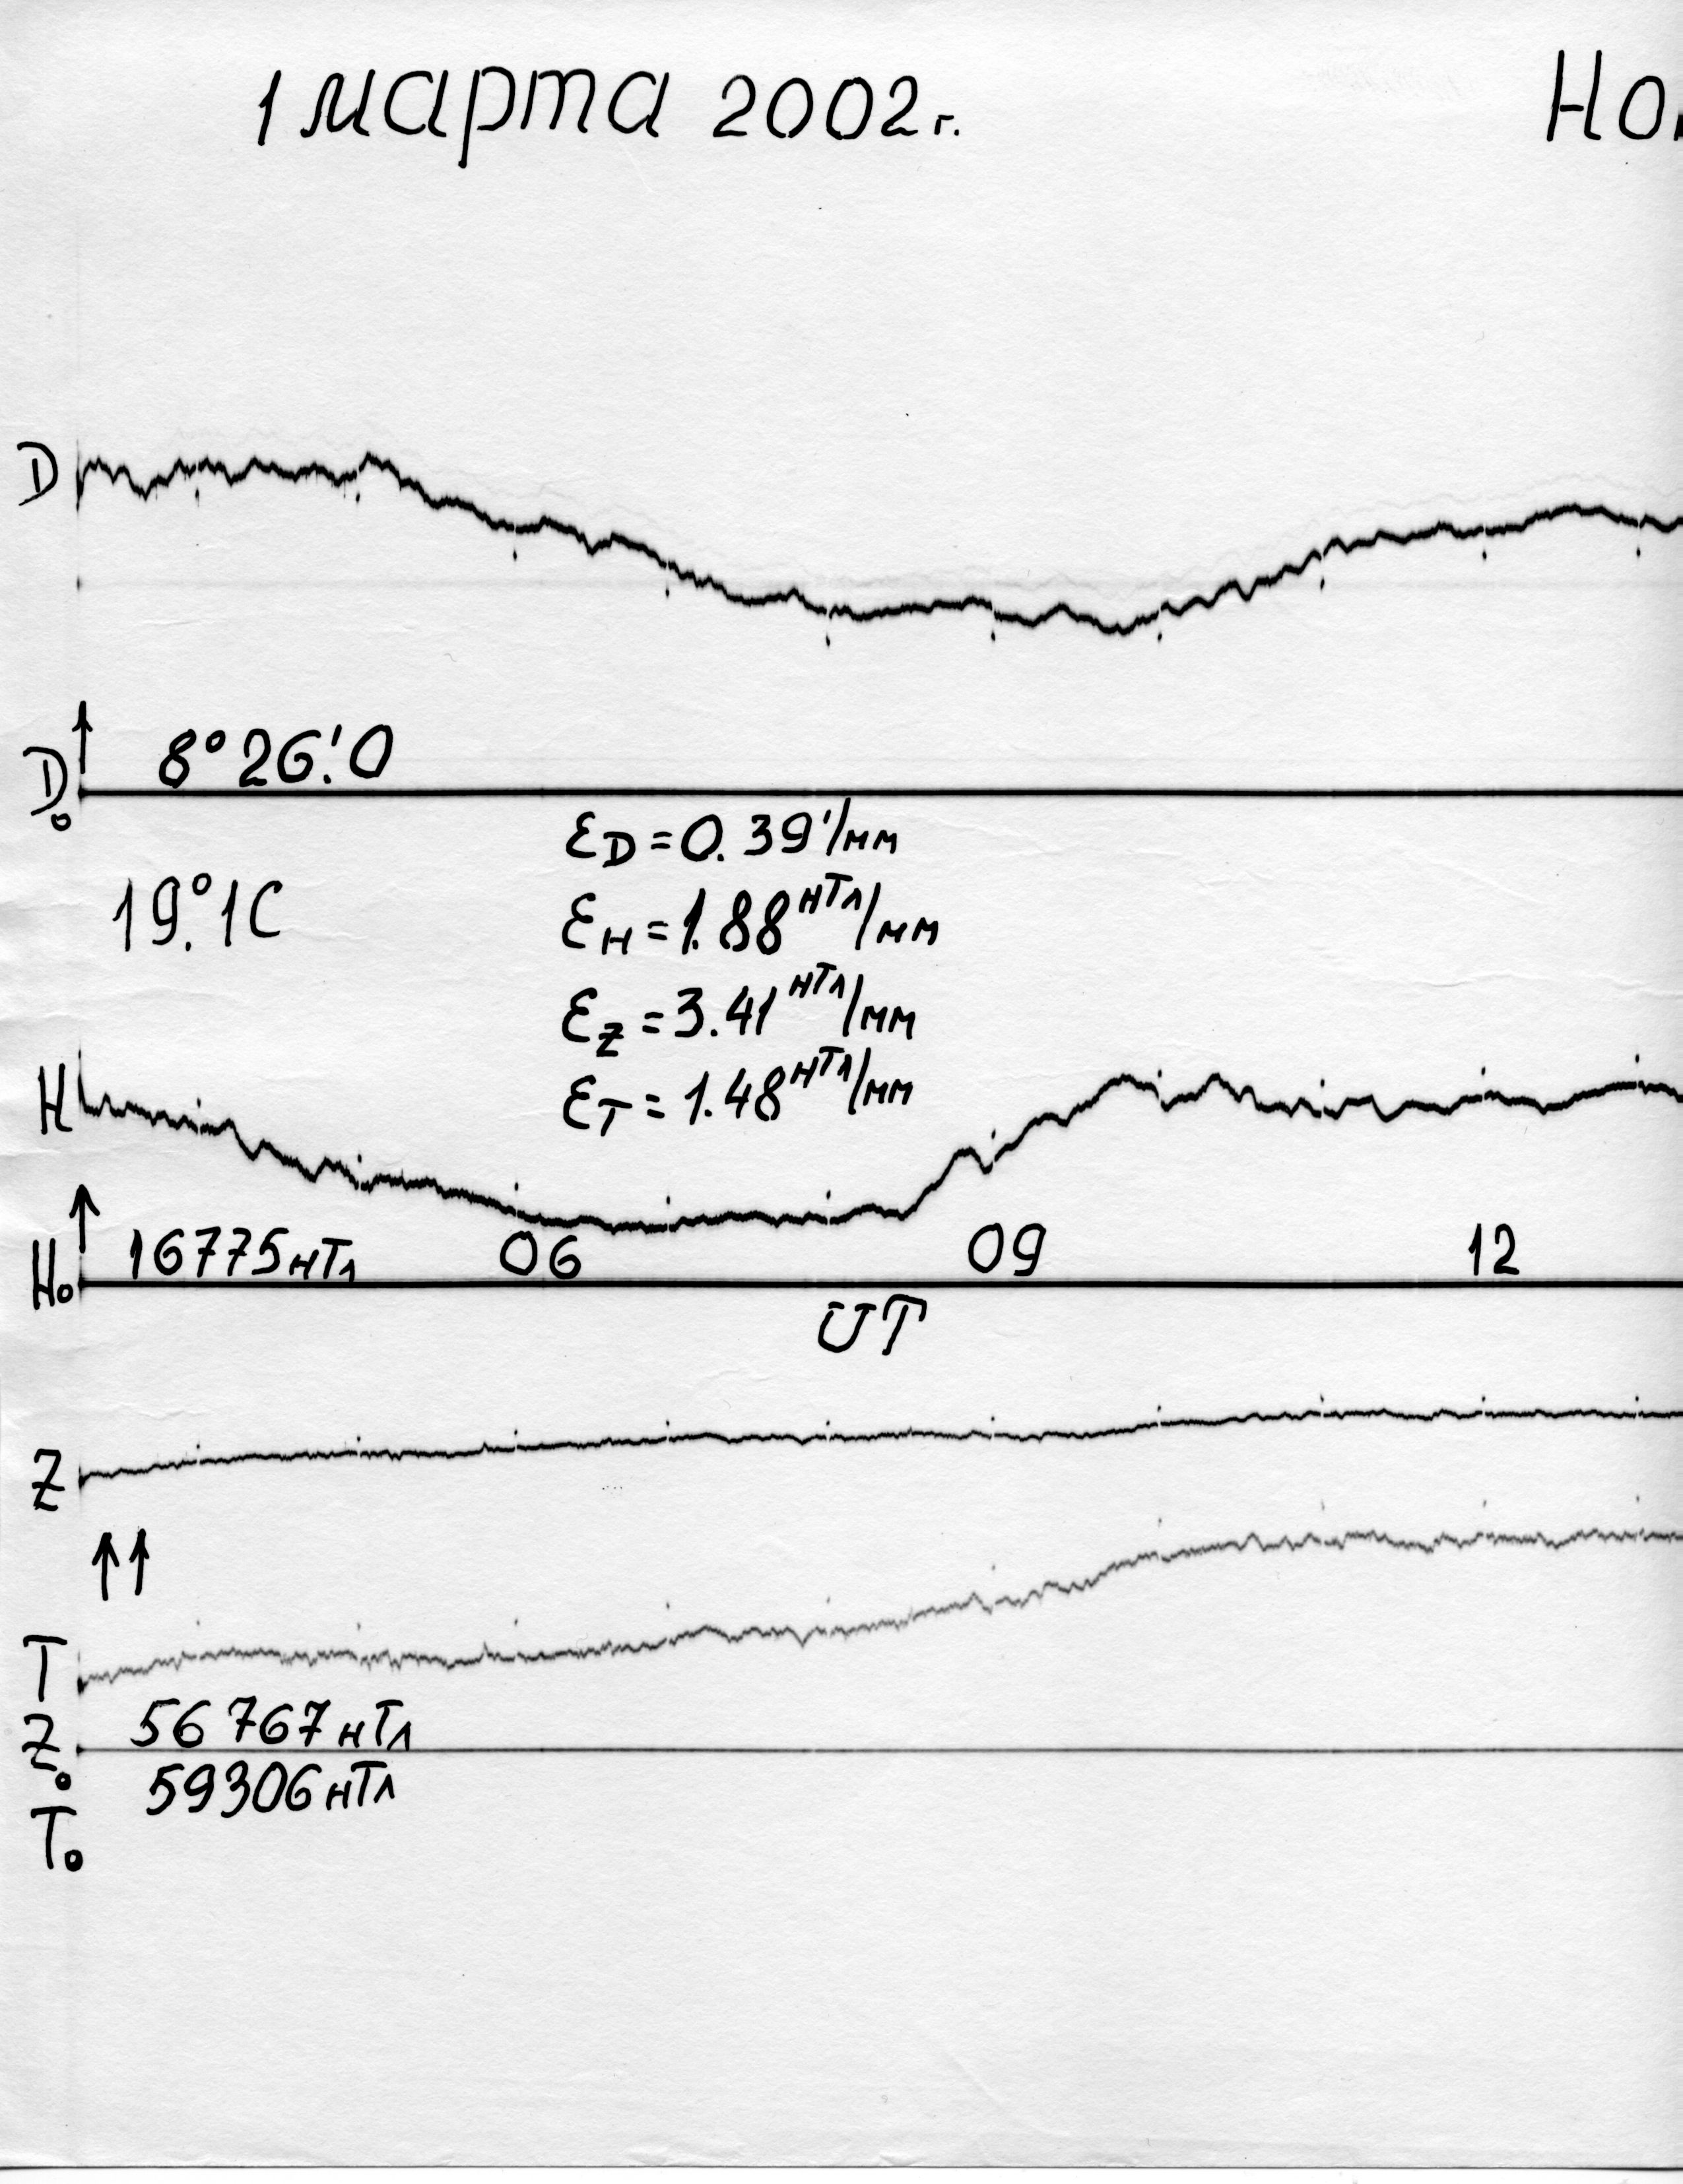 1 марта 2002г.
D
8°26!0
D₀
εD=0.39'/мм
19°.1С
εH=1.88нТл/мм
εZ=3.41нТл/мм
εT=1.48нТл/мм
H
16775нТл 06 09 12
H₀
UT
Z
T
56767нТл
Z₀
59306нТл
T₀